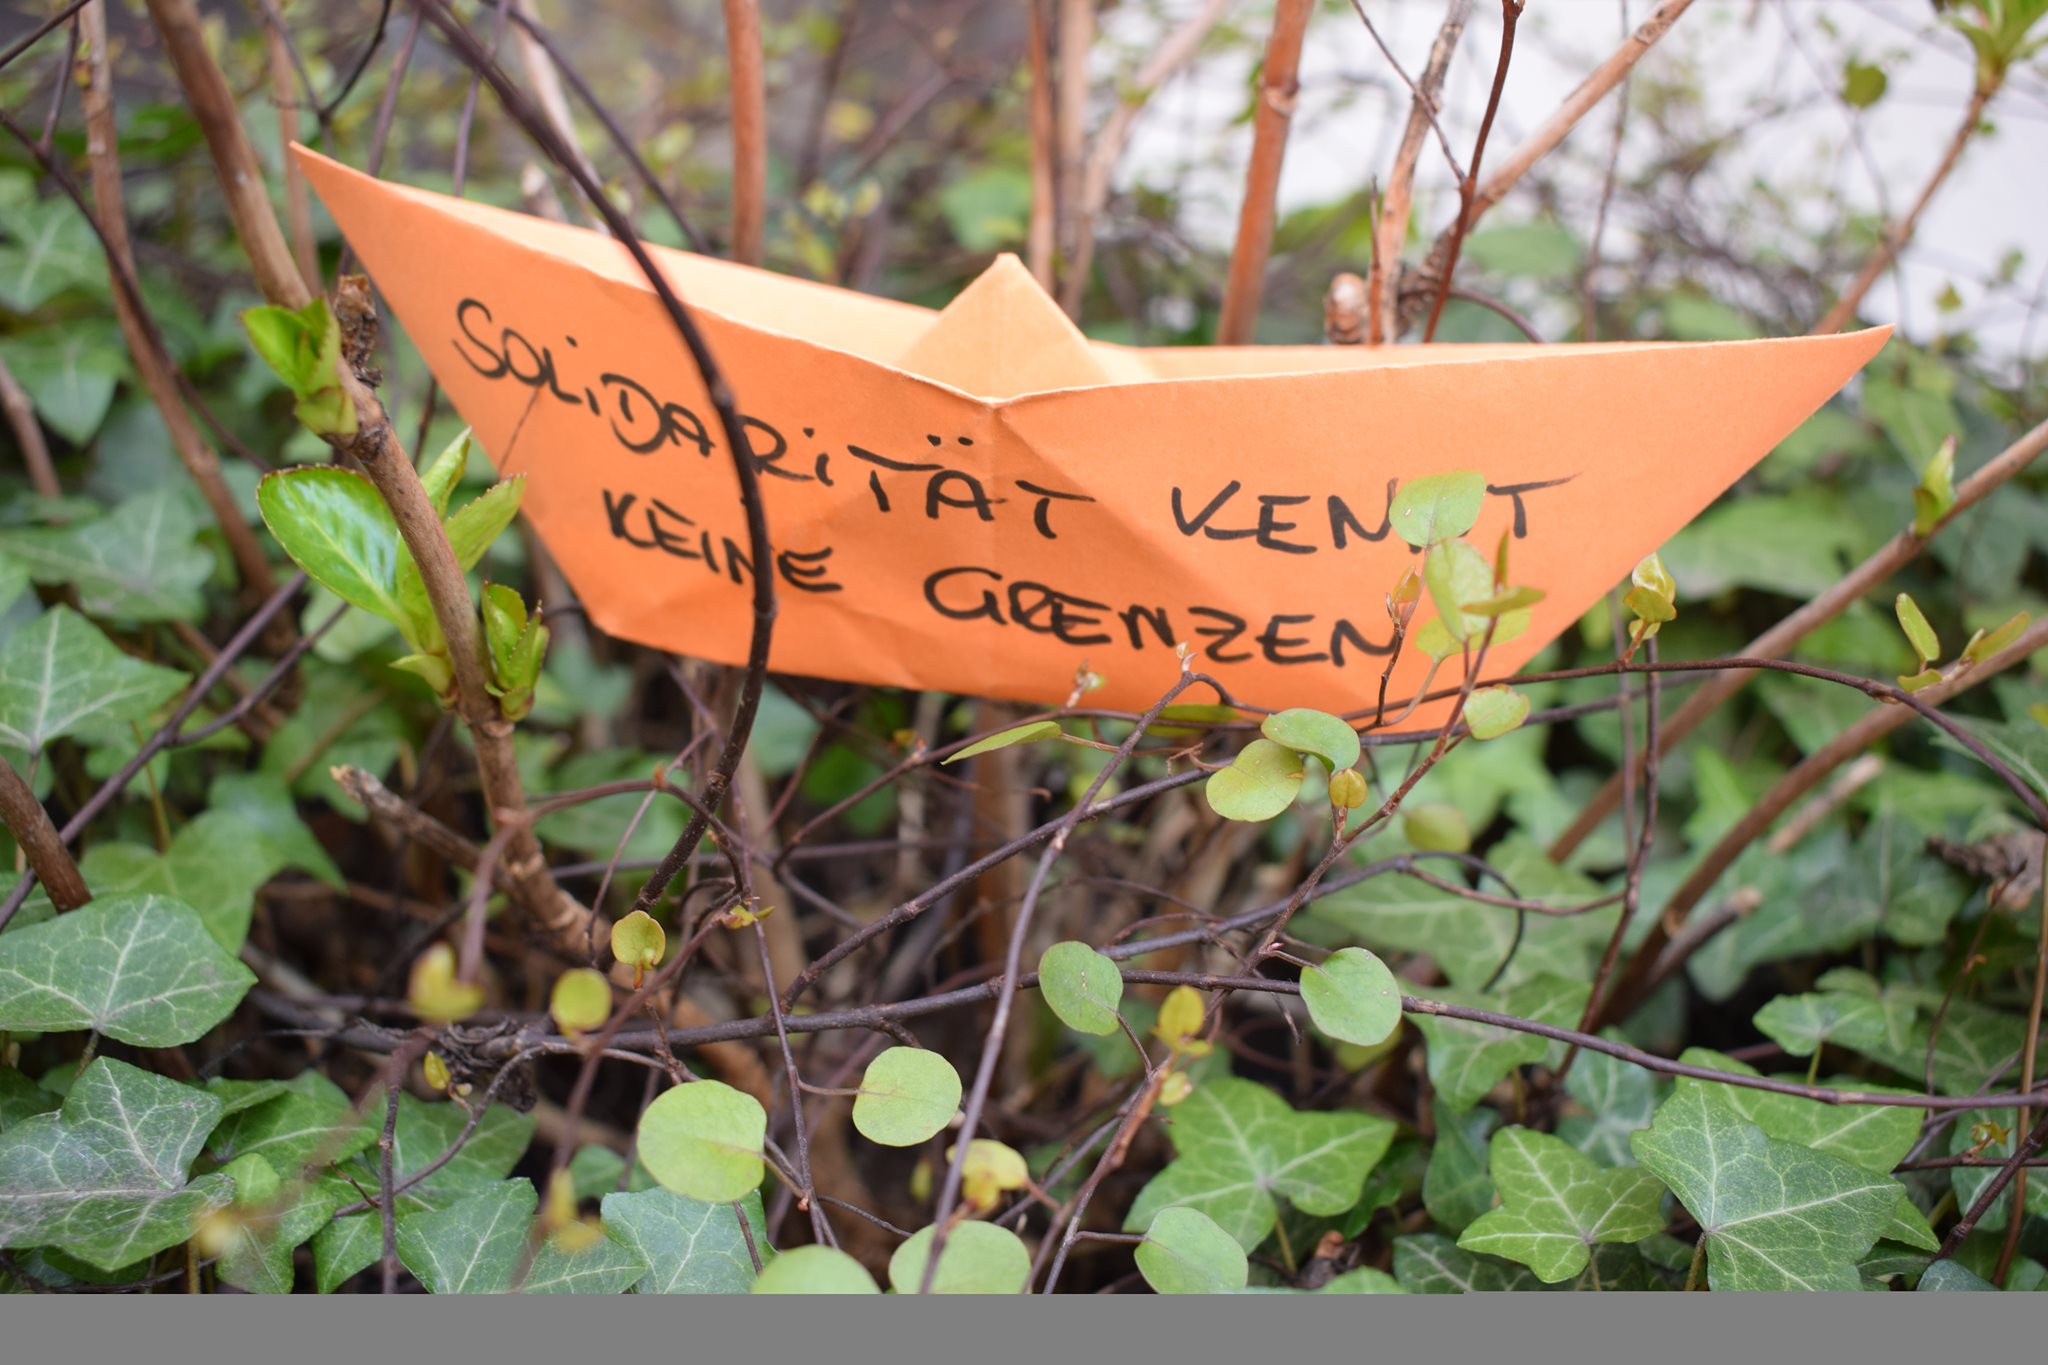 SOLiDARiTÄT KENNT
KEINE GRENZEN